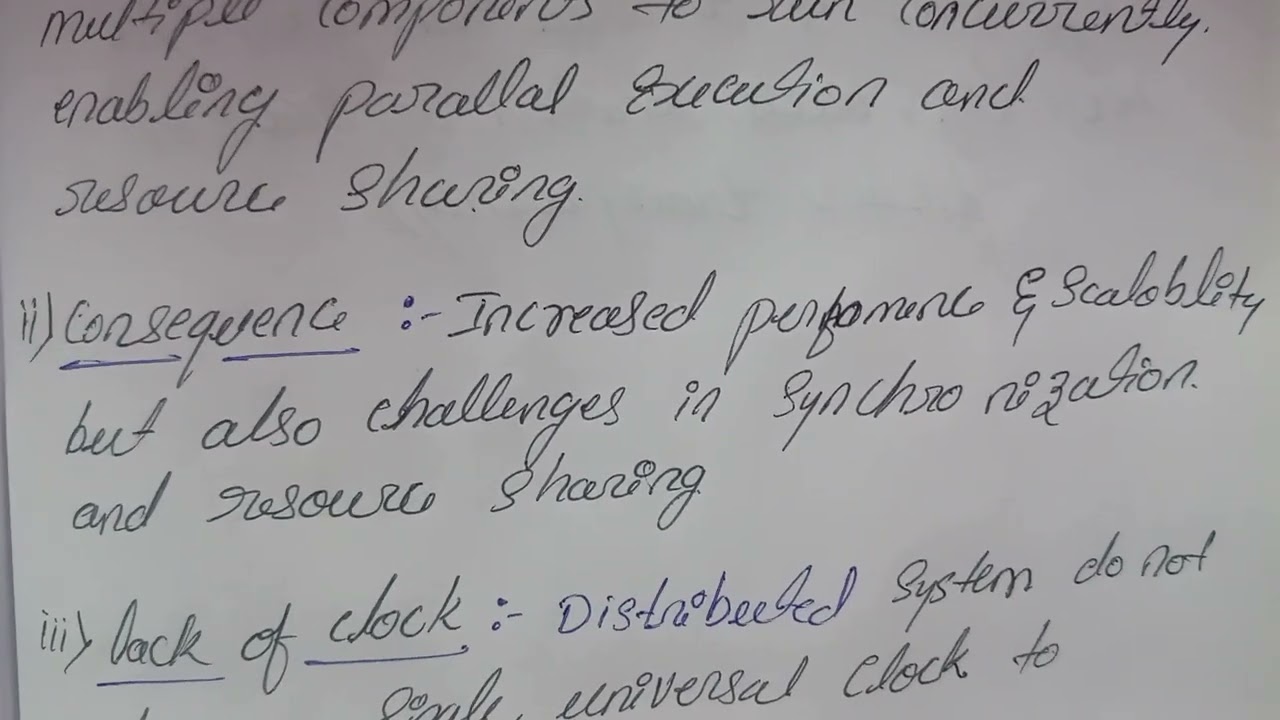 multiple components to run concurrently.
enabling parallal Execution and
resource sharing.
ii) Consequence :- Increased perfomence & Scaloblity
but also challenges in Synchronization.
and resource sharing
iii) lack of clock :- Distributed System do not
Single, universal clock to